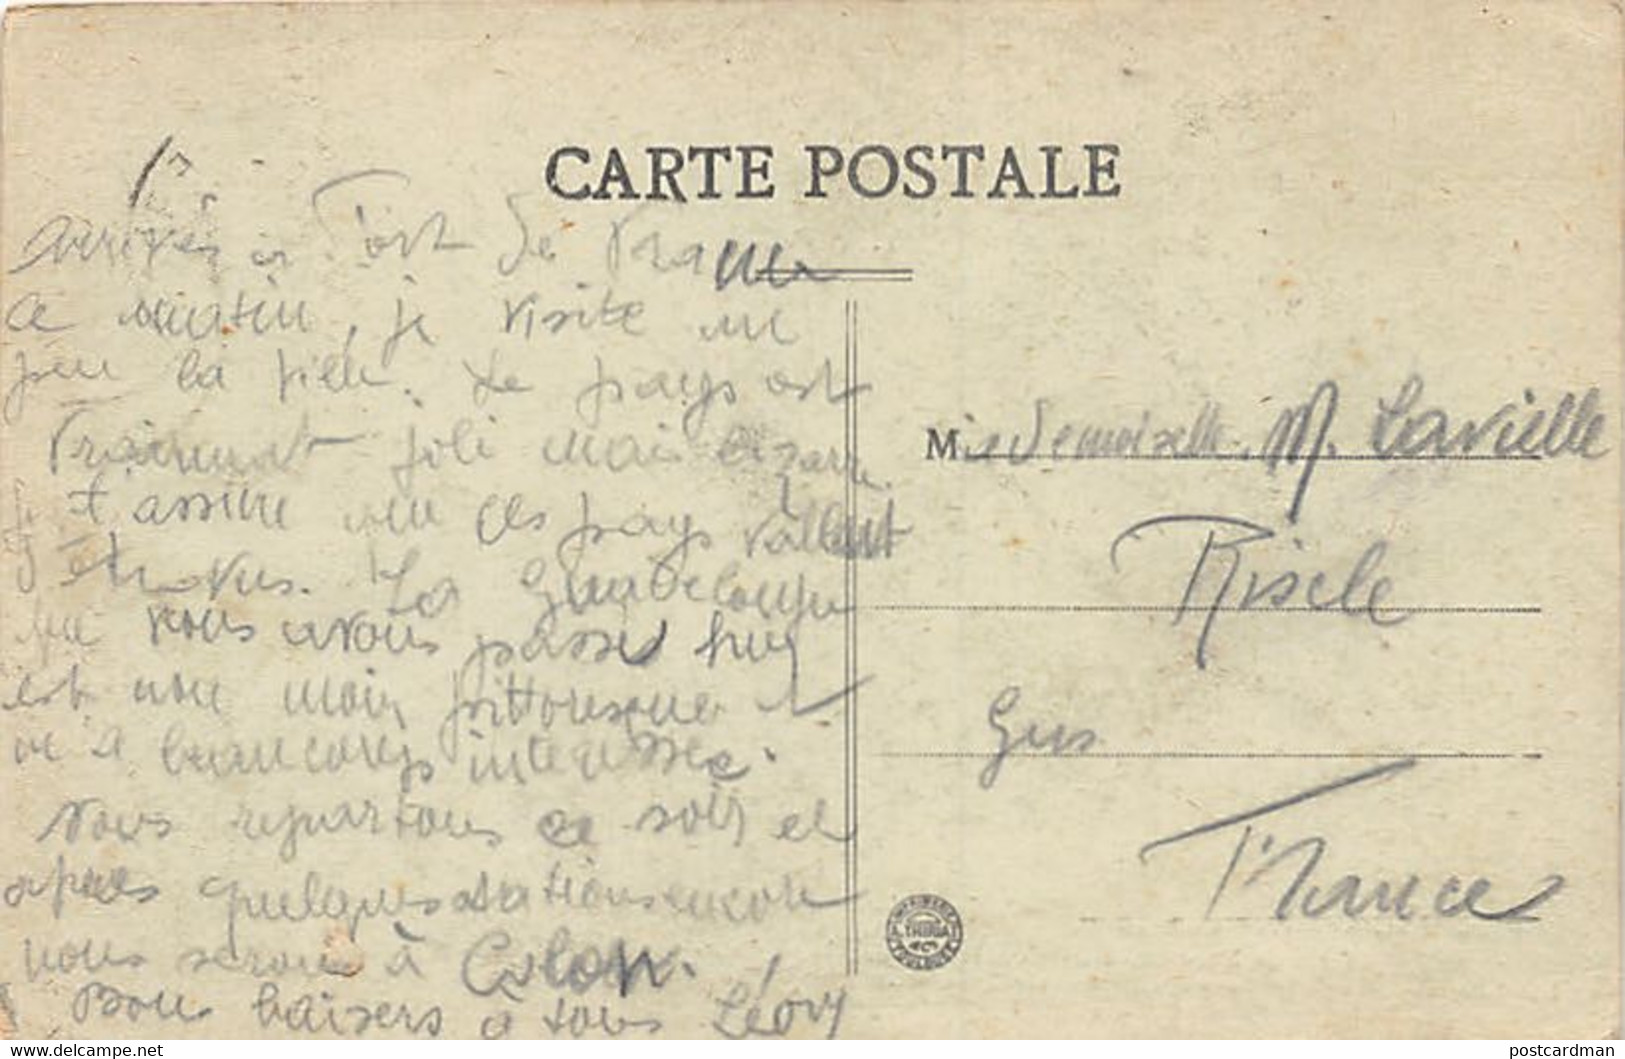 CARTE POSTALE
Arrivés à Fort de France
ce matin, je visite un
peu la ville. Le pays est
vraiment joli mais bizarre.
Je t'assure que ces pays vallent
être vus. La Guadeloupe
que nous avons passés hier
est non moins pittoresque et
m'a beaucoup interessée.
Nous repartons ce soir et
après quelques stations encore
nous serons à Colon.
Bons baisers à tous Léony
Mademoiselle. M. Lavielle
Riscle
Gers
France
IMPRIMERIE
A. THIRIAT
& Cie
TOULOUSE
postcardman